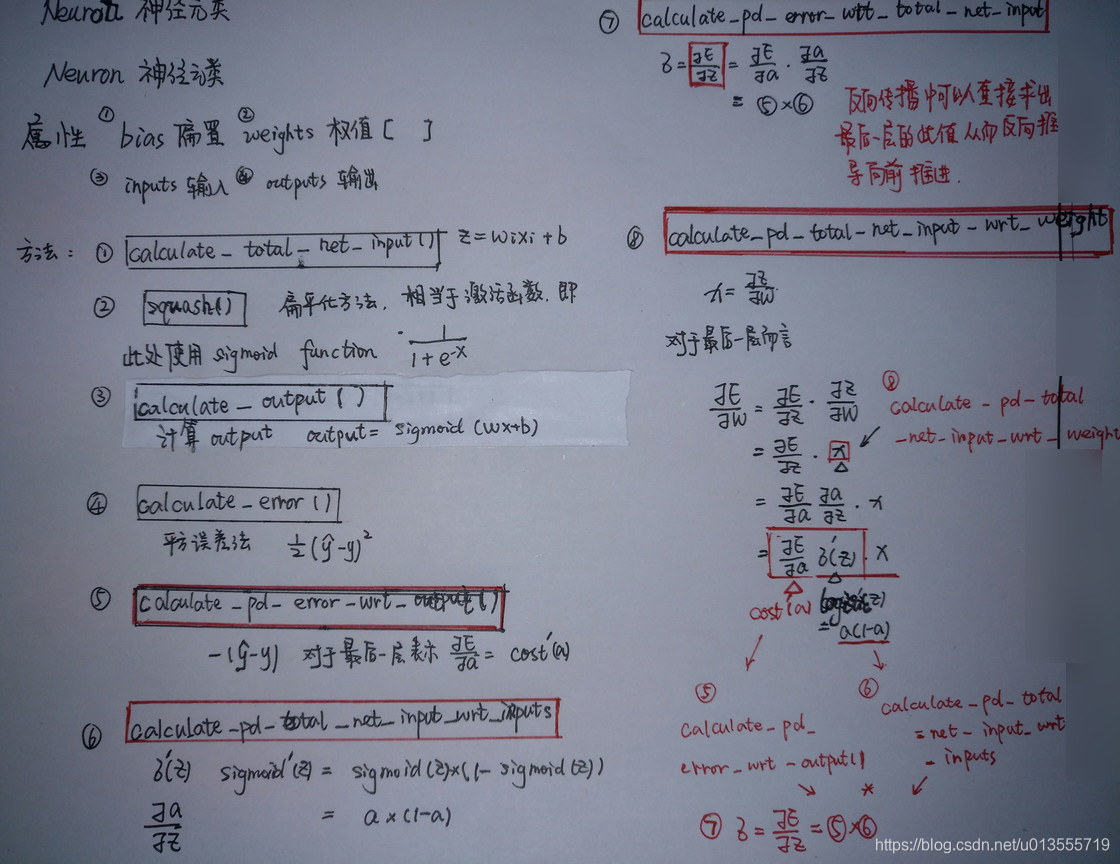 Neuron 神经元类
Neuron 神经元类
属性 ① bias 偏置 ② weights 权值 [ ]
③ inputs 输入 ④ outputs 输出
方法: ① calculate_total_net_input() z=wixi+b
② squash() 扁平化方法, 相当于激活函数, 即
此处使用 sigmoid function 1/(1+e^-x)
③ calculate_output()
计算 output output= sigmoid(wx+b)
④ calculate_error()
平方误差法 ½(ŷ-y)²
⑤ calculate_pd_error_wrt_output()
-(ŷ-y) 对于最后一层表示 ∂E/∂a = cost'(a)
⑥ calculate_pd_total_net_input_wrt_inputs
δ'(z) sigmoid'(z) = sigmoid(z)×(1-sigmoid(z))
∂a/∂z = a×(1-a)
⑦ calculate_pd_error_wtt_total_net_input
δ = ∂E/∂z = ∂E/∂a · ∂a/∂z
= ⑤×⑥
反向传播中可以直接求出
最后一层的此值从而反向推
导向前推进.
⑧ calculate_pd_total_net_input_wrt_weight
x = ∂z/∂w
对于最后一层而言
∂E/∂w = ∂E/∂z · ∂z/∂w
⑧ calculate_pd_total
_net_input_wrt_weight
= ∂E/∂z · x
= ∂E/∂a ∂a/∂z · x
= ∂E/∂a δ'(z) · x
cost'(a)
= a(1-a)
⑤
calculate_pd_
error_wrt_output()
⑥ calculate_pd_total
=net_input_wrt
_inputs
*
⑦ δ = ∂E/∂z = ⑤×⑥
https://blog.csdn.net/u013555719